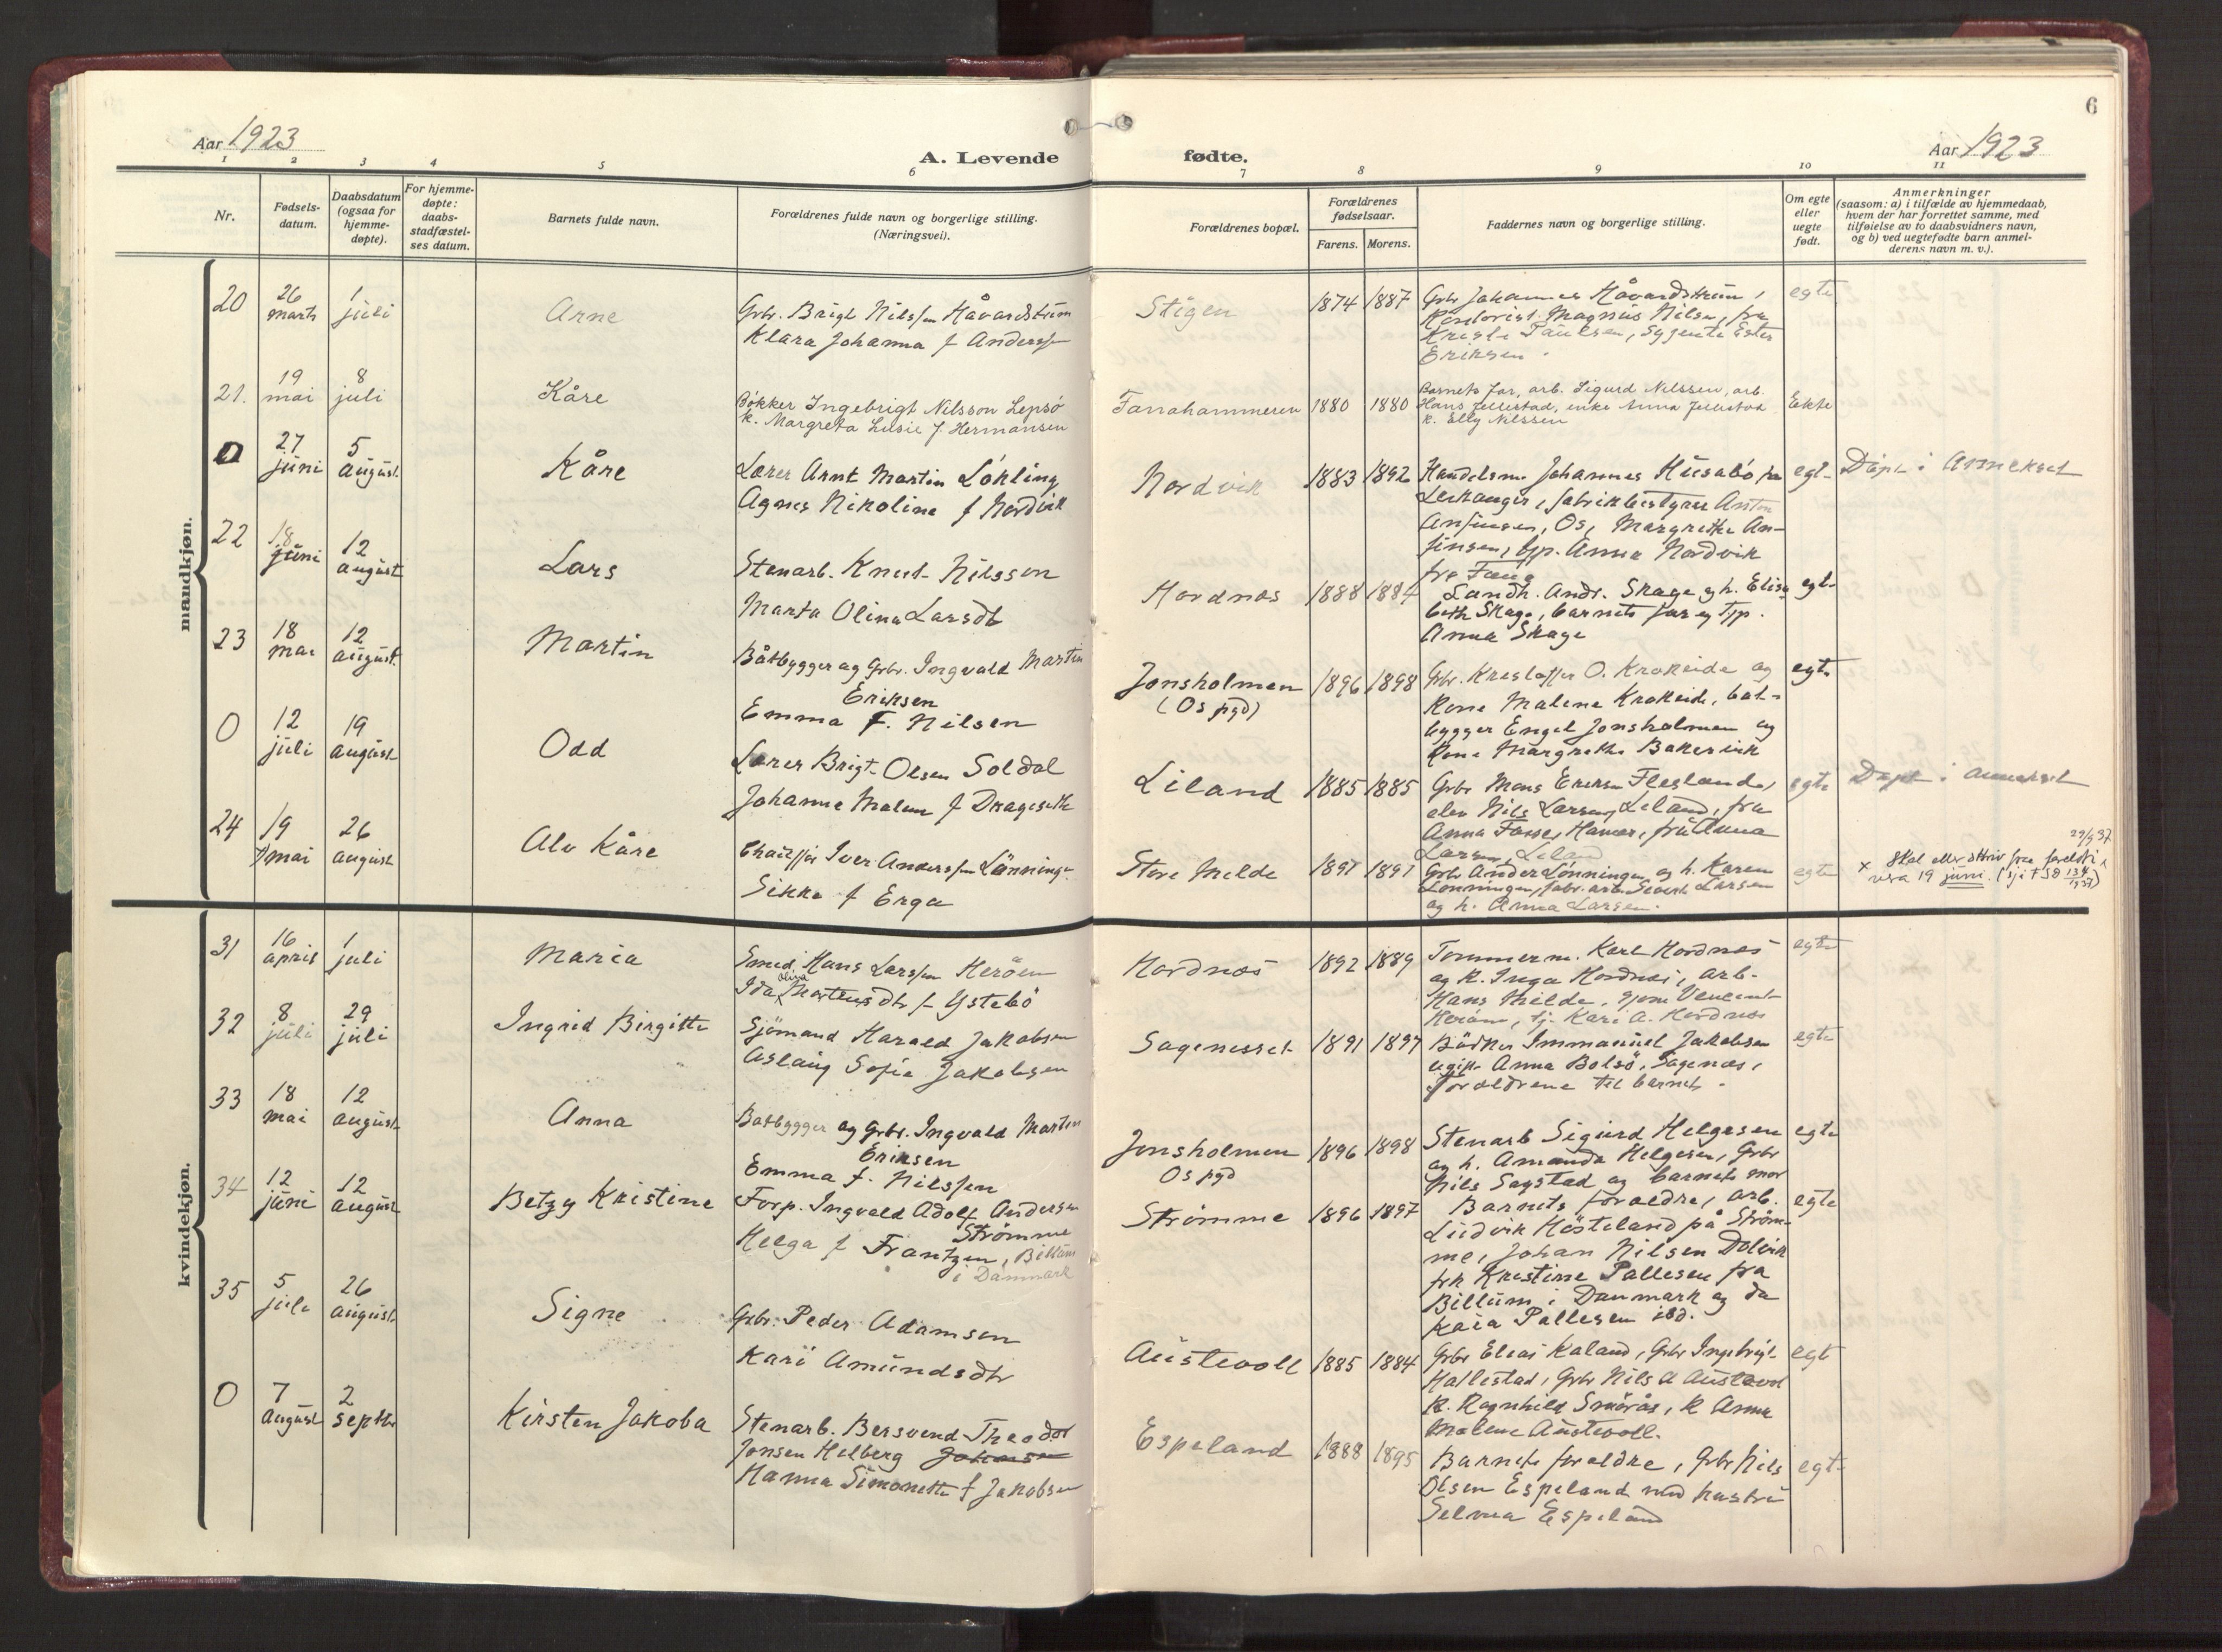 6
Aar 1923
A. Levende
fødte.
Aar 1923
1 2 3 4 5 6 7 8 9 10 11
Nr.
Fødsels-
datum.
Daabsdatum
(ogsaa for
hjemme-
døpte).
For hjemme-
døpte:
daabs-
stadfæstel-
ses datum.
Barnets fulde navn.
Forældrenes fulde navn og borgerlige stilling.
(Næringsvei).
Forældrenes bopæl.
Forældrenes
fødselsaar.
Farens. Morens.
Faddernes navn og borgerlige stilling.
Om egte
eller
uegte
født.
Anmerkninger
(saasom: a) i tilfælde av hjemmedaab,
hvem der har forrettet samme, med
tilføielse av to daabsvidners navn,
og b) ved uegtefødte barn anmel-
derens navn m. v.).
mandkjøn.
20
26
marts
1
juli
Arne
Grbr. Brigt Nilssen Håvardstun
Klara Johanna f Anderssen
Stigen
1874 1887
Grbr Johannes Håvardstun,
Magnus Nilsen, fru
Paulsen, Ester
Eriksen.
egte
21.
19
mai
8
juli
Kåre
Bøkker Ingebrigt Nilsson Lepsø
k. Margreta Lusie f. Hermansen
Fanahammeren
1880 1880
Barnets far, arb. Sigurd Nilssen, arb.
Hans Jellestad, enke Anna Jellestad
k. Elly Nilssen
Ekte
0
27
juni
5
august
Kåre
Lærer Arnt Martin Løkling
Agnes Nikoline f Nordvik
Nordvik
1883 1892
Handelsm Johannes Husabø fra
Leikanger, fabrikbestyrer Anton
Ansinsen, Os, Margrethe An-
sinsen, tjp. Anna Nordvik
fra Fana
egt-
Døpt i Annekset
22
18
juni
12
august
Lars
Stenarb. Knut Nilsson
Marta Olina Larsdt
Hordnæs
1888 1884
Landh. Andr. Skage og h. Elisa
beth Skage, barnets far og tjp.
Anna Skage
egt-
23
18
mai
12
august.
Martin
Båtbygger og Grbr. Ingvald Martin
Eriksen
Emma F. Nilsen
Jonsholmen
(Os pgd)
1896 1898
Grbr. Kristoffer O. Krokeide og
kone Malene Krokeide, båt-
bygger Engel Jonsholmen og
kone Margrethe Bakervik
egte
0
12
juli
19
august
Odd
Lærer Brigt Olsen Soldal
Johanne Malene f Drageseth
Liland
1885 1885
Grbr Mons Flesland,
elev Nils Larsen Liland, fru
Anna Fosse, Hamre, fru Anna
Larsen, Liland
egte
Døpt i annekset
24
19
mai
26
august
Alv Kåre
Chauffør Iver Anderssen Lønningen
Sikke f Erga
Store Milde
1897 1897
Grbr Anders Lønningen og h. Karen
Lønningen, fabr. arb. Sivert Larsen
og h. Anna Larsen.
egte
29/9 37
x Skal etter skriv fra foreldri
vera 19 juni.
kvindekjøn.
31
16
april
1
juli
Maria
Smed Hans Larssen Herøen
Oliva
Ida Mortensdtr f Ystebø
Hordnæs
1892 1889
Tømmerm. Karl Hordnæs
og k. Inga Hordnæs, arb.
Hans Milde, Vincent
Herøen, tj. Kari A. Hordnæs
egte
32
8
juli
29
juli
Ingrid Birgitte
Sjømand Harald Jakobsen
Aslaug Sofie Jakobsen
Sagenesset
1891 1897
Bødker Immanuel Jakobsen
ugift Anna Bolsø, Sagenæs,
foreldrene til barnet.
egte
33
18
mai
12
august
Anna
Båtbygger og grbr. Ingvald Martin
Eriksen
Emma f. Nilssen
Jonsholmen
Os pgd
1896 1898
Stenarb Sigurd Helgesen
og h. Amanda Helgesen, Grbr
Nils Søgstad og barnets mor
egte
34
12
juni
12
august
Betzy Kristine
Forp. Ingvald Adolf Andersen
Strømme
Helga f Frantzen, Billum
i Danmark
Strømme
1896 1897
Barnets foreldre, arb.
Ludvik Høsteland på Strøm-
me, Johan Nilsen Dolvik
frk Kristine Pallesen fra
Billum i Danmark og da
Kaia Pallesen ibd.
egte
35
5
juli
26
august
Signe
Grbr. Peder Adamsen
Kari Amundsdtr
Austevoll
1885 1884
Grbr Elias Kaland, Grbr Ingebrigt
Hallestad, Grbr Nils A Austevoll
k. Ragnhild Smørås, k Anna
Malene Austevoll.
egt
0
7
august
2
septbr
Kirsten Jakoba
Stenarb. Bersvend Theodor
Jonsen Helberg Johnsen
Hanna Simonette f Jakobsen
Espeland
1888 1895
Barnets foreldre, Grbr Nils
Olsen Espeland med hustru
Selma Espeland
egt-